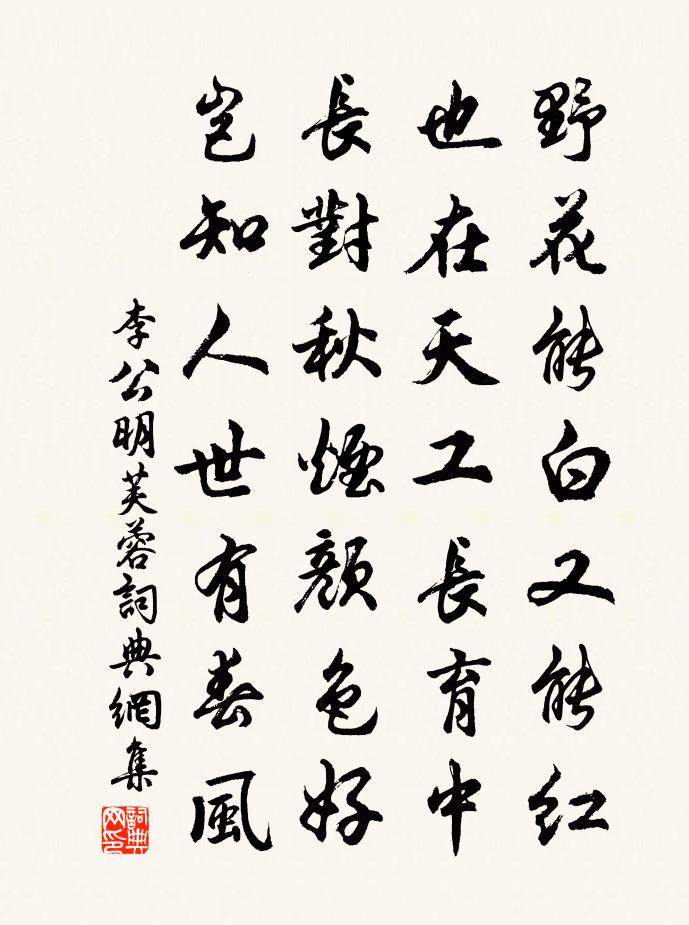 野花能白又能紅
也在天工長育中
長對秋煙顏色好
豈知人世有春風
李公明芙蓉詞典網集
詞典網印